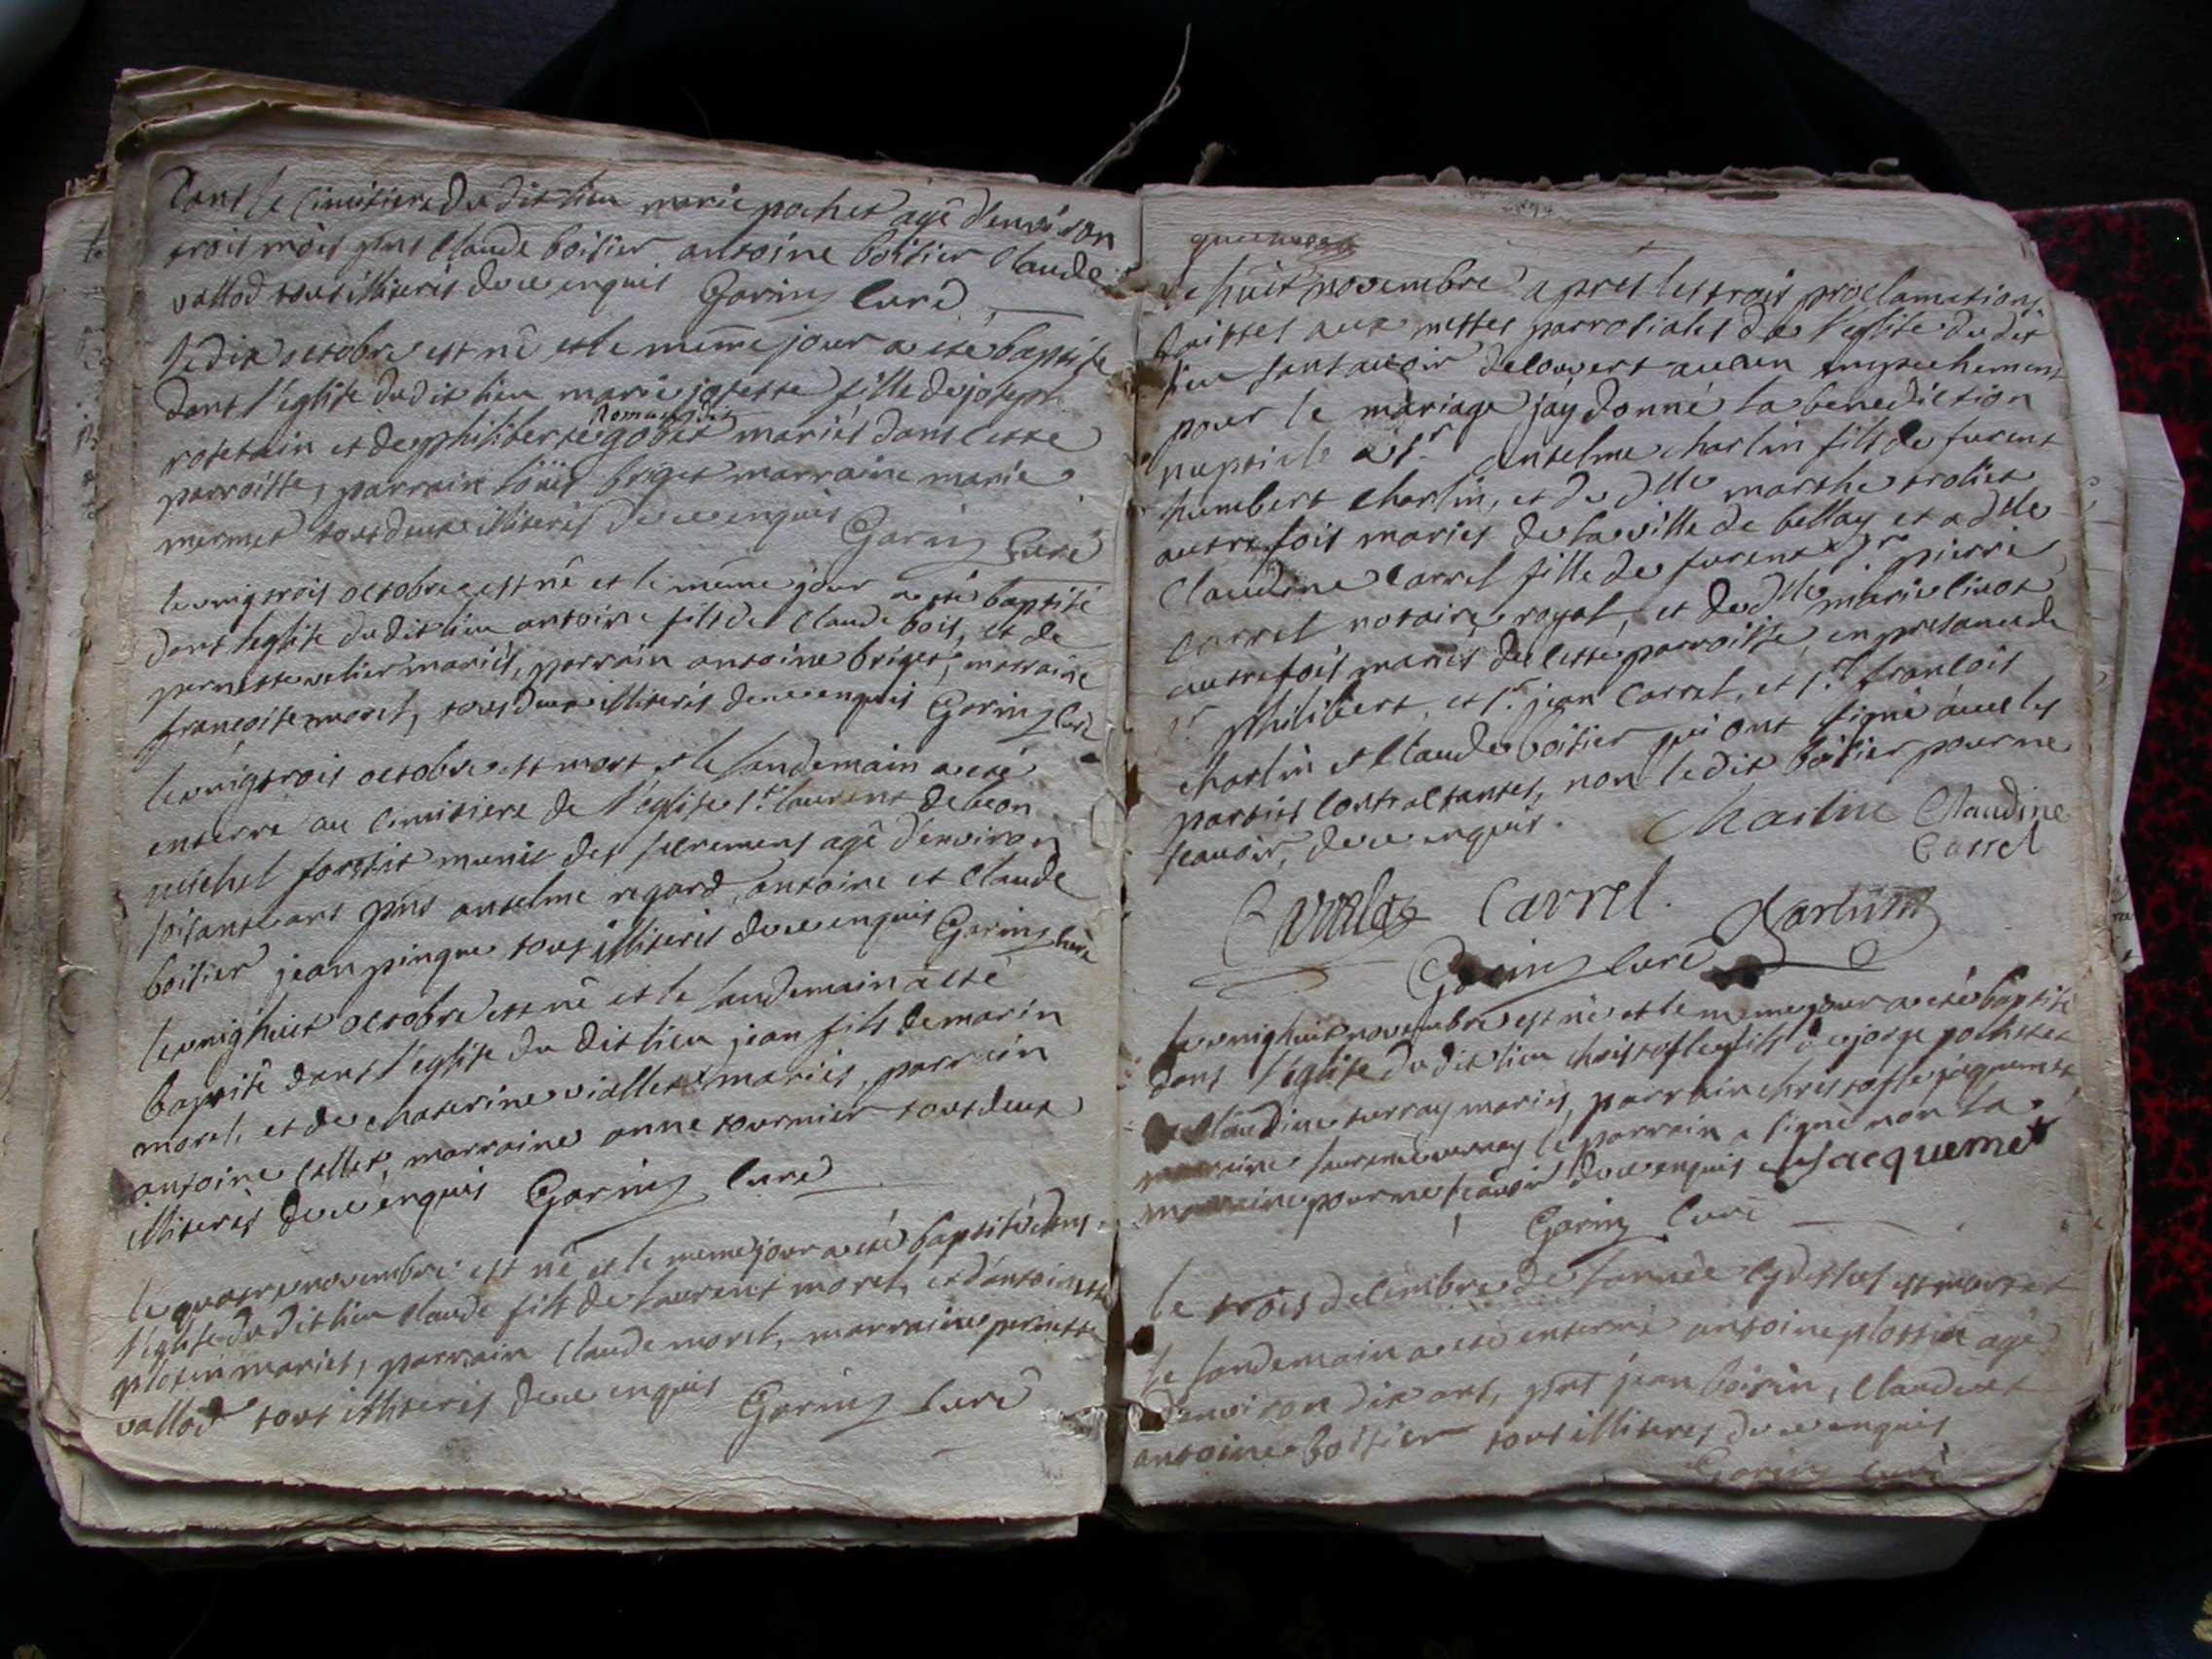 dans le cimitiere du dit lieu marie pochet agé d'environ
trois mois pnts claude boitier antoine boitier claude
vallod tous illiteris de ce enquis Gorin curé
le dix octobre est né et le meme jour a eté baptisé
dans l'eglise du dit lieu marie josette fille de joseph
rosetain et de philiberte godet mariés dans cette
parroisse, parrain loüis briget marraine marie
mermet tous deux illiteris de ce enquis Gorin curé
le vingtrois octobre est né et le même jour a eté baptisé
dans l'eglise du dit lieu antoine fils de claude bois, et de
pernette velier mariés, parrain antoine briget, marraine
françoise morel, tous deux illiteris de ce enquis Gorin curé
le vingtrois octobre est mort et le landemain a eté
enterré au cimitiere de l'eglise st laurent de beon
michel forestit munie des sacremens agé d'environ
soisante ans pnts anselme regard, antoine et claude
boitier jean pingue tous illiteris de ce enquis Gorin curé
le vinghuit octobre est né et le landemain a eté
baptisé dans l'eglise du dit lieu jean fils de marin
morel, et de chaterine viallet mariés, parrain
antoine collet, marraine anne tournier tous deux
illiteris de ce enquis Gorin curé
le quatre novembre est né et le meme jour a eté baptisé dans
l'eglise du dit lieu claude fils de laurent morel, et d'antoinette
plotin mariés, parrain claude morel, marraine pernette
vallod tous illiteris de ce enquis Gorin curé
le huit novembre apres les trois proclamations
faittes aux messes parrosiales de l'eglise du dit
lieu sans avoir decouvert aucun empechement
pour le mariage j'ay donné la benediction
nuptiale a sr anselme charlin fils de furent
humbert charlin, et de dlle marthe trolliet
autrefois mariés de la ville de bellay et a dlle
claudine carrel fille de furent sr pierre
carrel notaire royal, et de dlle marie livot
autrefois mariés de cette parroisse, en presance de
sr philibert, et sr jean carrel, et sr francois
charlin et claude boitier qui ont signé avec les
parties contractantes, non le dit boitier pour ne
scavoir, de ce enquis. Charlin Claudine
Carrel
Carrel Charlin
Gorin curé
le vinghuit novembre est né et le meme jour a eté baptisé
dans l'eglise du dit lieu christofle fils de jorge pochet et
claudine surray mariés, parrain christofle jaquemet
marraine laurence vernay le parrain a signé non la
marraine pour ne scavoir de ce enquis Jacquemet
Gorin curé
le trois decembre de l'année cy dessus est mort et
le landemain a eté enterré antoine plottin agé
d'environ dix ans, pnts jean boisin, claude et
antoine boitier tous illiteris de ce enquis
Gorin curé